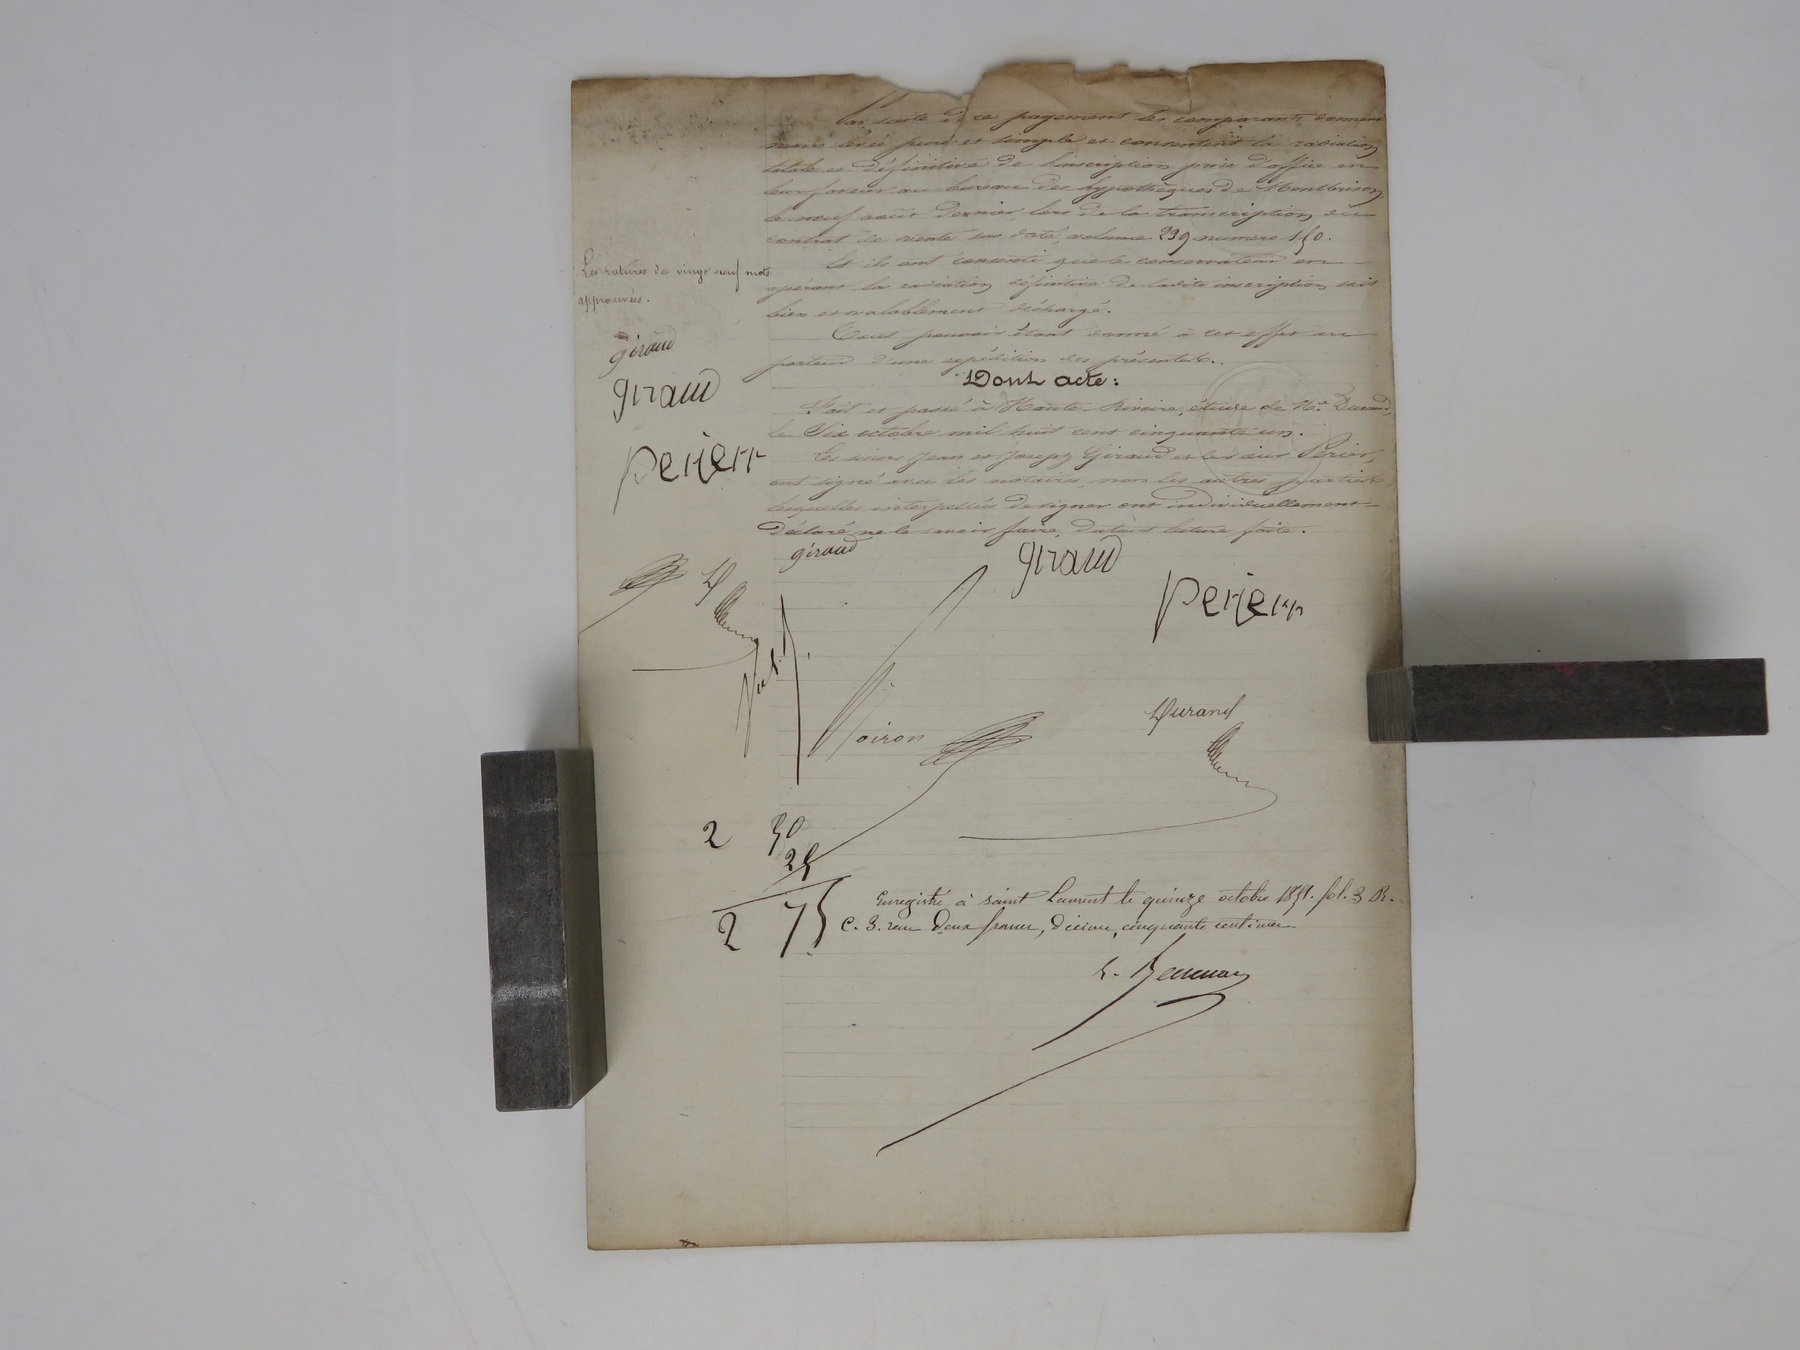 Par suite de ce payement les comparants donnent
main levée pure et simple et consentent la radiation
totale et définitive de l'inscription prise d'office en
leur faveur au bureau des hypothèques de Montbrison
le neuf août dernier lors de la transcription du
contrat de vente sus daté, volume 239 numero 150.
Et ils ont consenti que le conservateur en
opérant la radiation définitive de ladite inscription soit
bien et valablement déchargé.
Tout pouvoir étant donné à cet effet au
porteur d'une expédition des présentes..
Dont acte:
Fait et passé à Haute-Rivoire, étude de Me. Durand,
le Six octobre mil huit cent cinquante un.
Les sieurs Jean et Joseph Giraud et le sieur Perier,
ont signé avec les notaires, non les autres parties
lesquelles interpellées de signer ont individuellement
déclaré ne le savoir faire, du tout lecture faite.
Les ratures de vingt neuf mots
approuvés.
giraud
giraud
perierr
giraud
giraud
perierr
D
Voiron
Durand
2 50
25
2 75
Enregistré à saint Laurent le quinze octobre 1851. fol. 3 Ro.
C. 3. reçu deux francs, décime, cinquante centimes